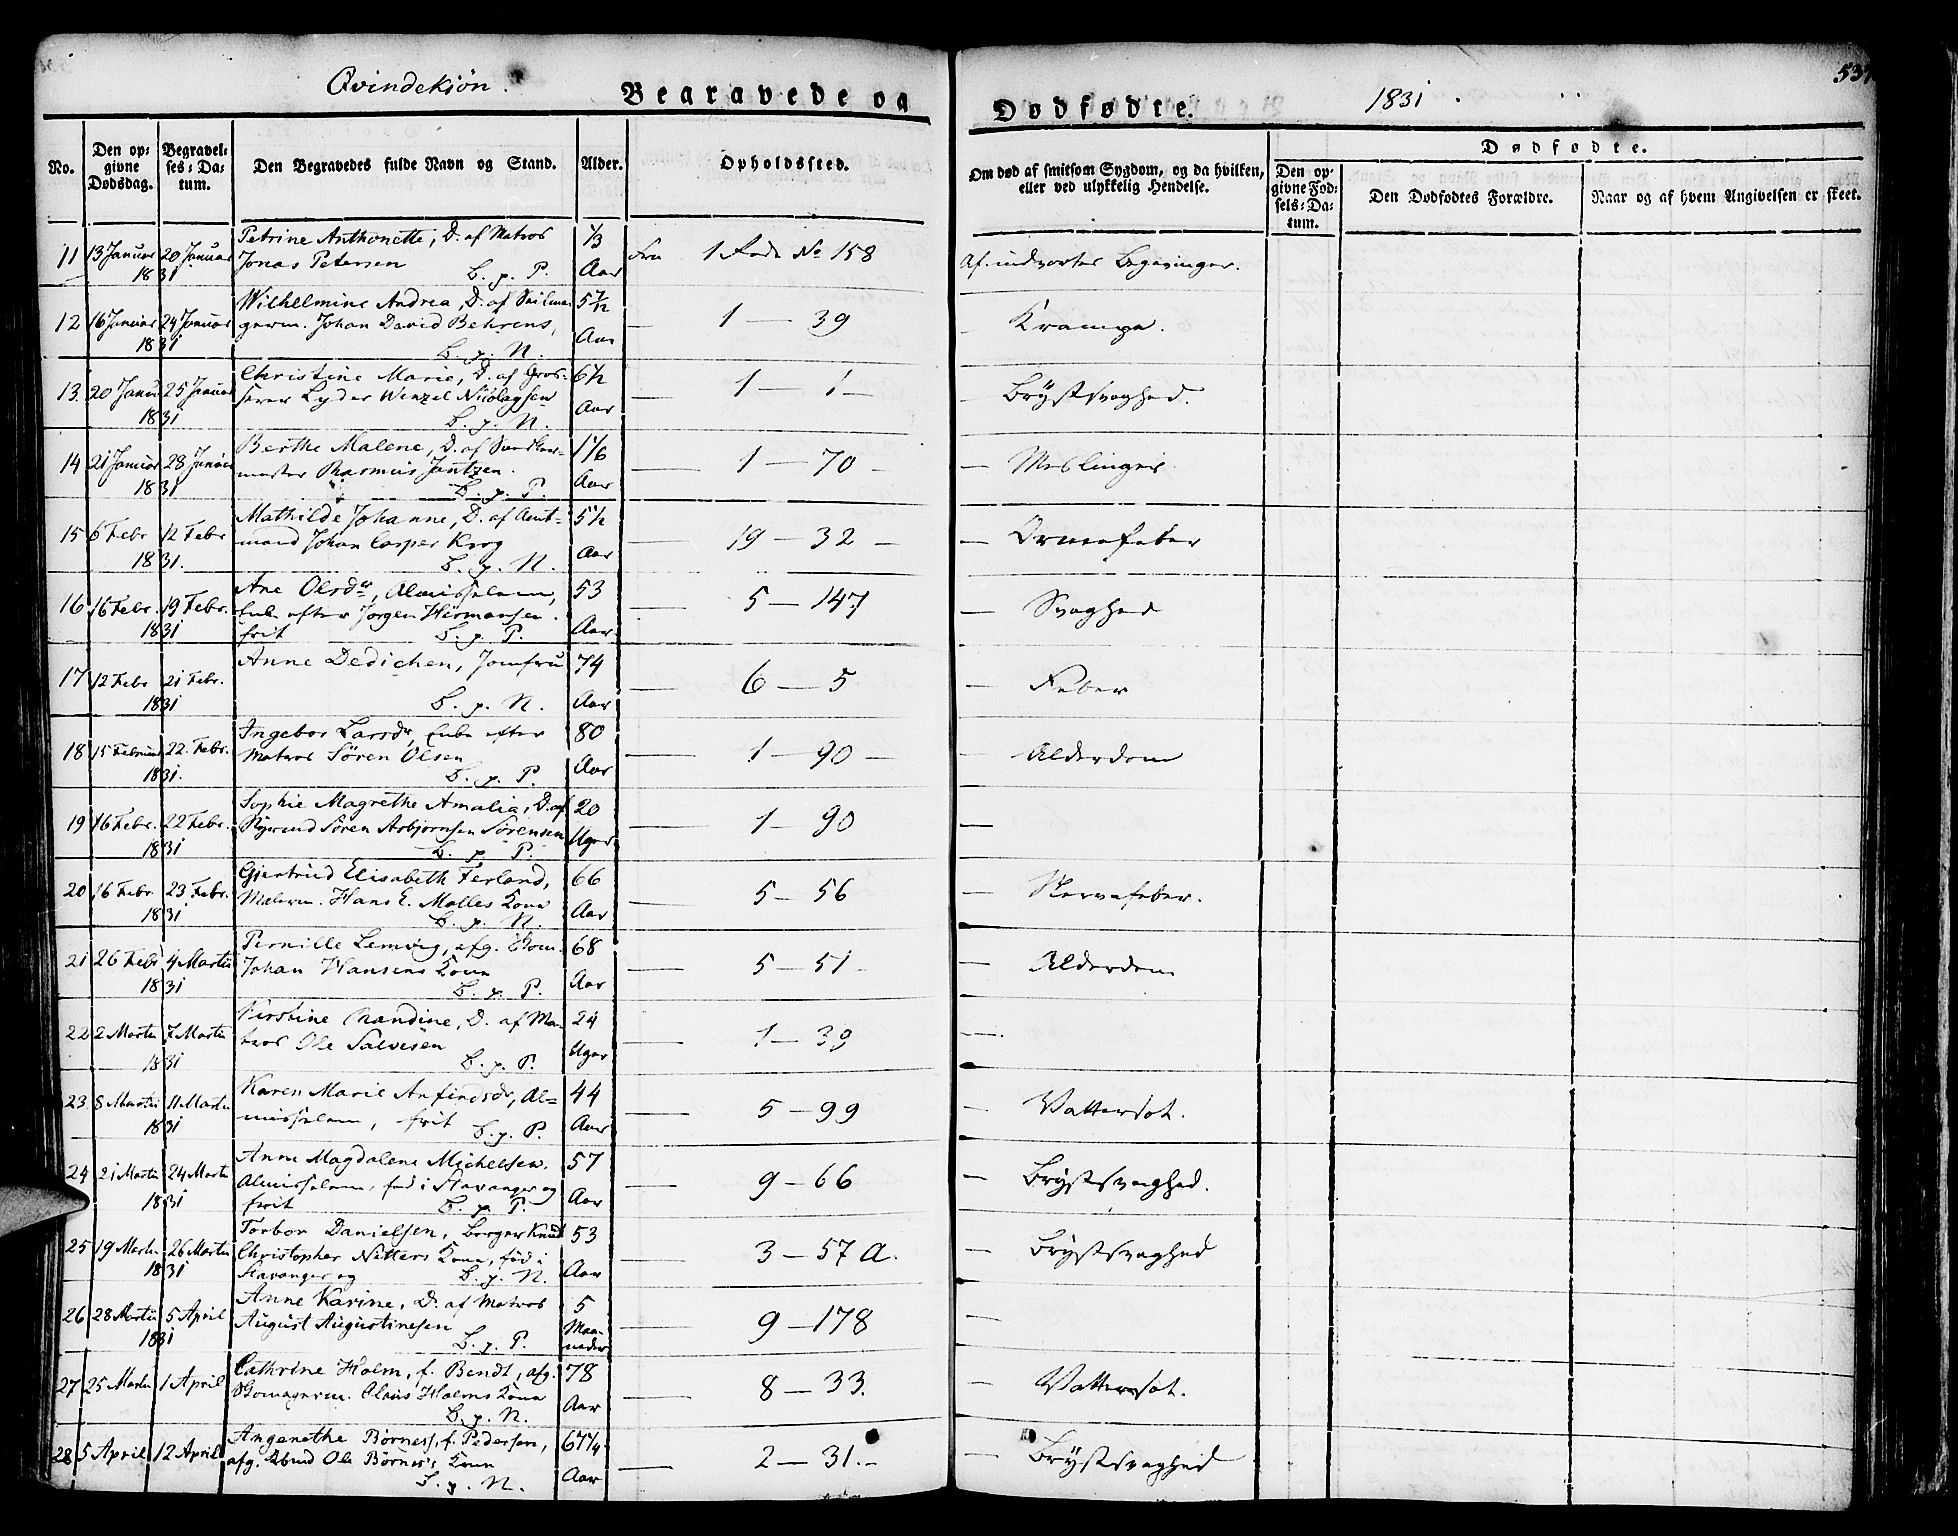 Qvindekjøn. Begravede og Dødfødte. 1831. 537
No.
Den opgivne Dødsdag.
Begravelses-Datum.
Den Begravedes fulde Navn og Stand.
Alder.
Opholdssted.
Om død af smitsom Sygdom, og da hvilken, eller ved ulykkelig Hendelse.
Dødfødte.
Den opgivne Fødsels-Datum.
Den Dødfødtes Forældre.
Naar og af hvem Angivelsen er skeet.
11 13 Januar 20 Januar Petrine Anthonette, D. af Matros 1/3 Fra 1 Rode No 158 Af indvortes
1831 Jonas Petersen B. p. P. Aar
12 16 Januar 24 Januar Wilhelmine Andrea, D. af Seilma- 5 7/12 — 1 — 39 — Krampe.
1831 germ. Johan David Behrens, Aar
B. p. N.
13. 20 Janu 25 Januar Christine Marie, D. af Gros- 6½ — 1 — 1 — — Brystsvaghed.
1831 serer Lyder Wenzel Nicolaysen Aar
B. p. N.
14 21 Januar 28 Januar Berthe Malene, D. af 1 1/6 — 1 — 70 — — Meslinger.
1831 Rasmus Jantzen. Aar
B. p. P.
15 6 Febr 12 Febr Mathilde Johanne, D. af Amt- 5½ — 19 — 32 — — Ormefeber
1831. mand Johan Casper Krog Aar
B. p. N.
16 16 Febr. 19 Febr. Ane Olsdr, Almisselem, 53 — 5 — 147 — Svaghed
1831 Enke efter Jørgen Hermansen. Aar.
frit B. p. P.
17 12 Febr 21 Febr. Anne Dedichen, Jomfru 74 — 6 — 5 — Feber
1831 B. p. N. Aar
18 15 Februar 22. Febr. Ingebor Larsdr, Enke efter 80 — 1 — 90 — — Alderdom
1831. Matros Sören Olsen Aar
B. p. P.
19 16 Febr. 22 Febr. Sophie Magrethe Amalia, D. af 20 — 1 — 90 —
1831 Sören Asbjornsen Sörensen Uger
B. p. P.
20 16 Febr 23 Febr. Gjertrud Elisabeth Ferland, 66 — 5 — 56 — Nervefeber.
1831 Malerm. Hans E. Møllers Kone Aar
B. p. N.
21 26 Febr 4 Martii Pernille Lemvig, afg. 68 — 5 — 51 — — Alderdom
1831 Johan Hansens Kone Aar
B. p. P.
22 2 Martii 7 Martii Kirstine Nandine, D. af Ma- 24 — 1 — 39 —.
1831 tros Ole Salvesen Uger
B. p. P.
23 8 Martii 11 Martii Karen Marie Anfindsdr, Al- 44 — 5 — 99 — Vattersot.
1831 misselem, frit B. p. P. Aar
24 21 Martii 24 Martii Anne Magdalene Michelsen. 57 — 9 — 66 — Brystsvaghed.
1831 Almisselem, fød i Stavanger og Aar
frit B. p. P.
25 19 Martii 26 Martii Torbor Danielsen, Borger Knud 53 — 3 — 57 A. — Brystsvaghed
1831 Christopher Netters Kone, fød i
Stavanger og B. p. N. Aar
26 28 Martii 5 April Anne Karine, D. af Matros 5 — 9 — 178 —
1831 August Augustinesen Maa-
B. p. P. neder
27 25 Martii 1 April Cathrine Holm, f. Bendt, afg. 78 — 8 — 33. — Vattersot.
Claus Holms Kone Aar
B. p. N.
28 5 April 12 April Angenethe Børness, f. Pedersen, 67¼ — 2 — 31. — — Brystsvaghed
afg. Ole Børness's Kone Aar
B. p. N.